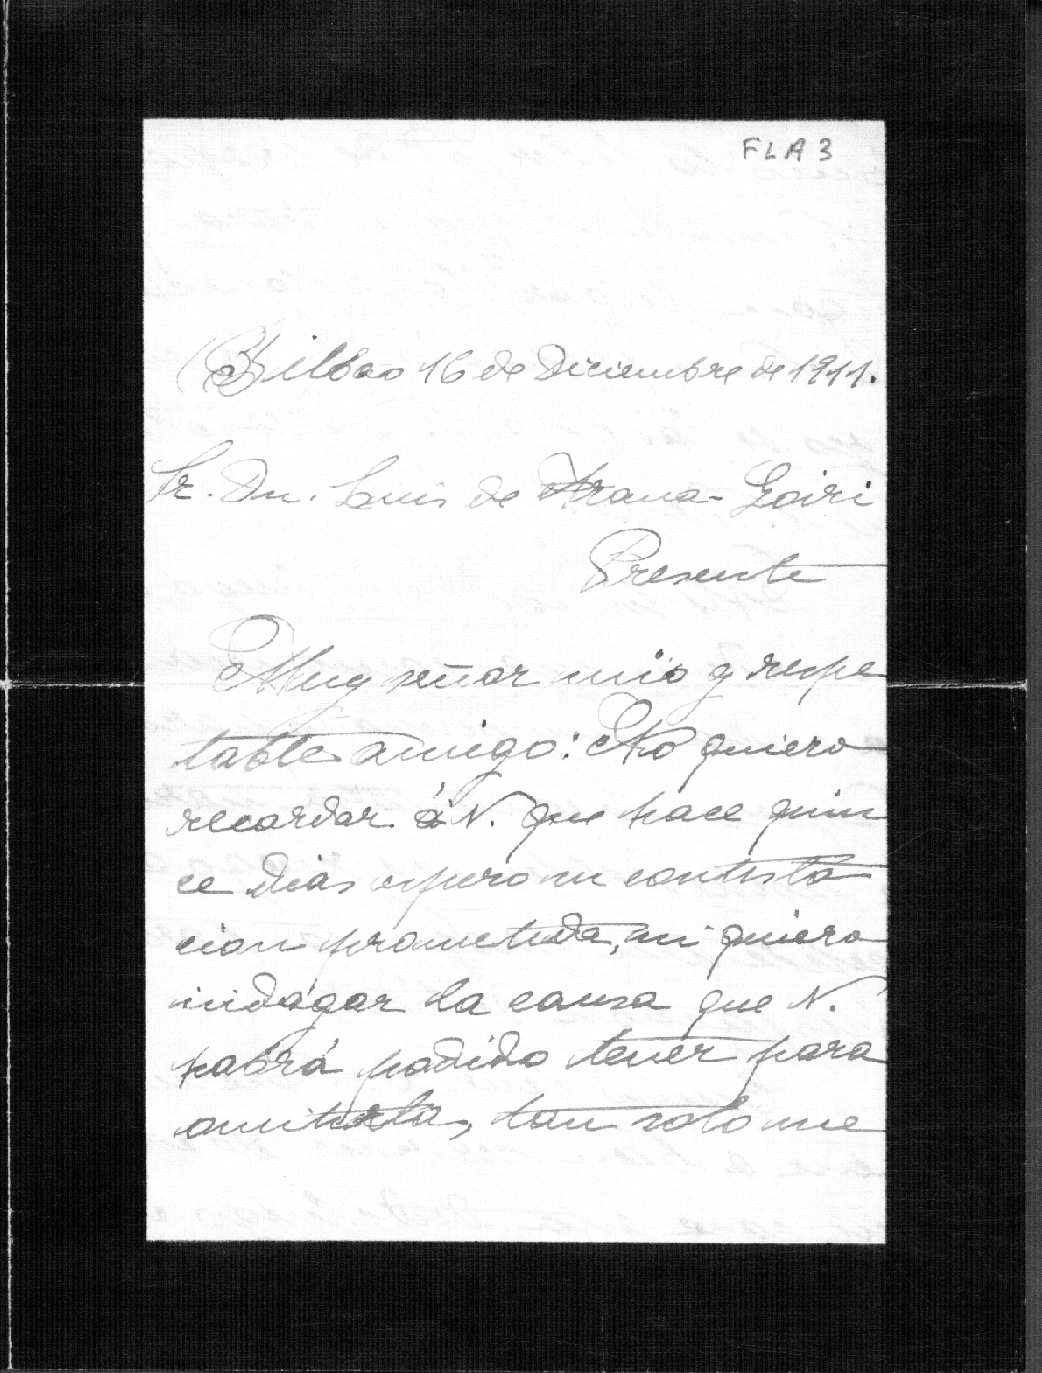 FLA 3
Bilbao 16 de Diciembre de 1911.
Sr. Dn. Luis de Arana-Goiri
Presente
Muy señor mio y respe
table amigo: No quiero
recordar á V. que hace quin
ce dias espero su contesta
cion prometida, ni quiero
indagar la causa que V.
habrá podido tener para
omitirla, tan solo me